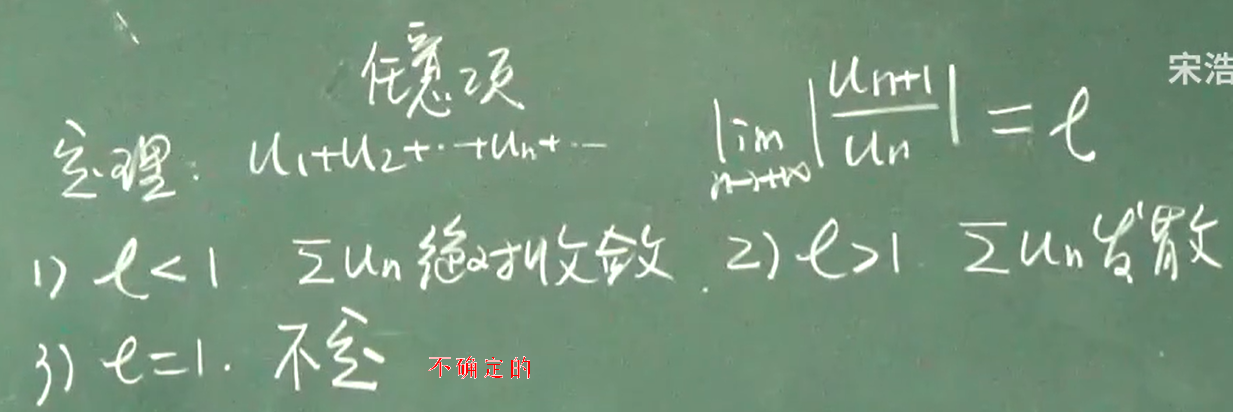 任意项
宋浩
定理: u₁+u₂+⋯+uₙ+⋯ lim n→+∞ |uₙ₊₁/uₙ| = ℓ
1) ℓ<1 Σuₙ 绝对收敛. 2) ℓ>1. Σuₙ 发散
3) ℓ=1. 不定 不确定的